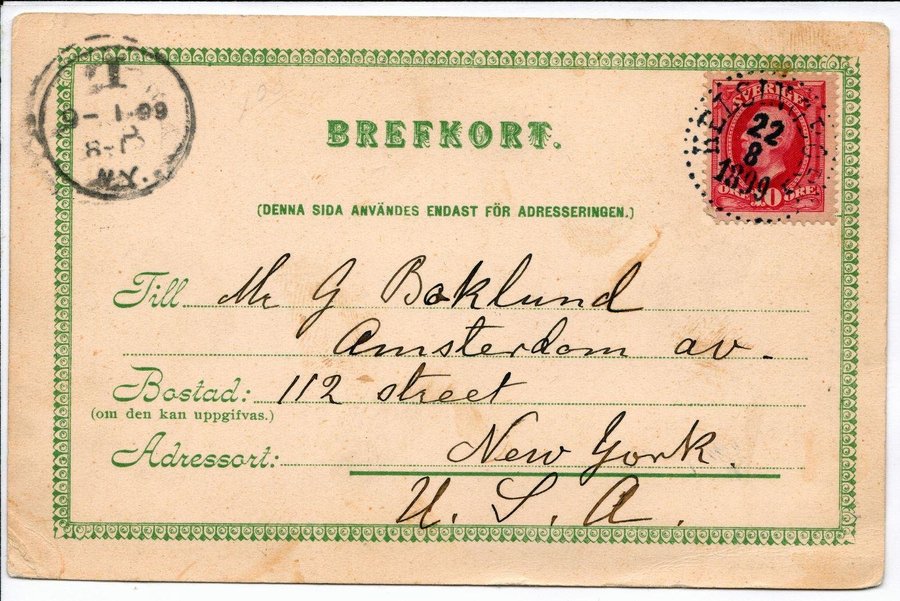 T
9-1-99
N.Y.
BREFKORT.
SVERIGE
22
8
1899
ÖRE 10 ÖRE
(DENNA SIDA ANVÄNDES ENDAST FÖR ADRESSERINGEN.)
Till Mr G Boklund
Amsterdam av.
Bostad: 112 street
(om den kan uppgifvas.)
Adressort: New York.
U. S. A.